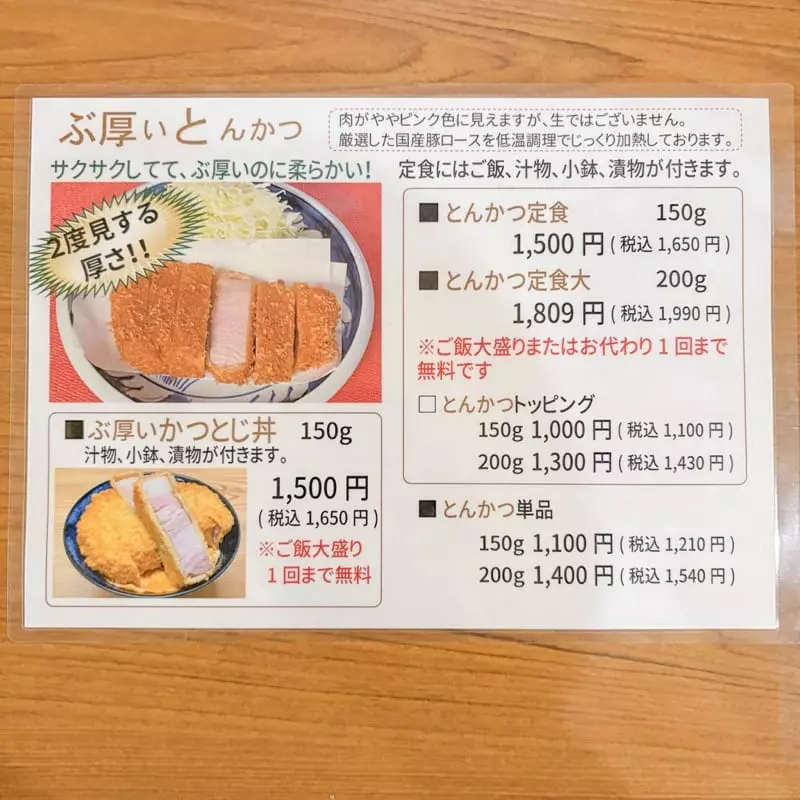 ぶ厚いとんかつ
肉がややピンク色に見えますが、生ではございません。
厳選した国産豚ロースを低温調理でじっくり加熱しております。
サクサクしてて、ぶ厚いのに柔らかい!
2度見する
厚さ!!
■ぶ厚いかつとじ丼 150g
汁物、小鉢、漬物が付きます。
1,500円
(税込1,650円)
※ご飯大盛り
1回まで無料
定食にはご飯、汁物、小鉢、漬物が付きます。
■とんかつ定食 150g
1,500円(税込1,650円)
■とんかつ定食大 200g
1,809円(税込1,990円)
※ご飯大盛りまたはお代わり1回まで
無料です
□とんかつトッピング
150g 1,000円(税込1,100円)
200g 1,300円(税込1,430円)
■とんかつ単品
150g 1,100円(税込1,210円)
200g 1,400円(税込1,540円)